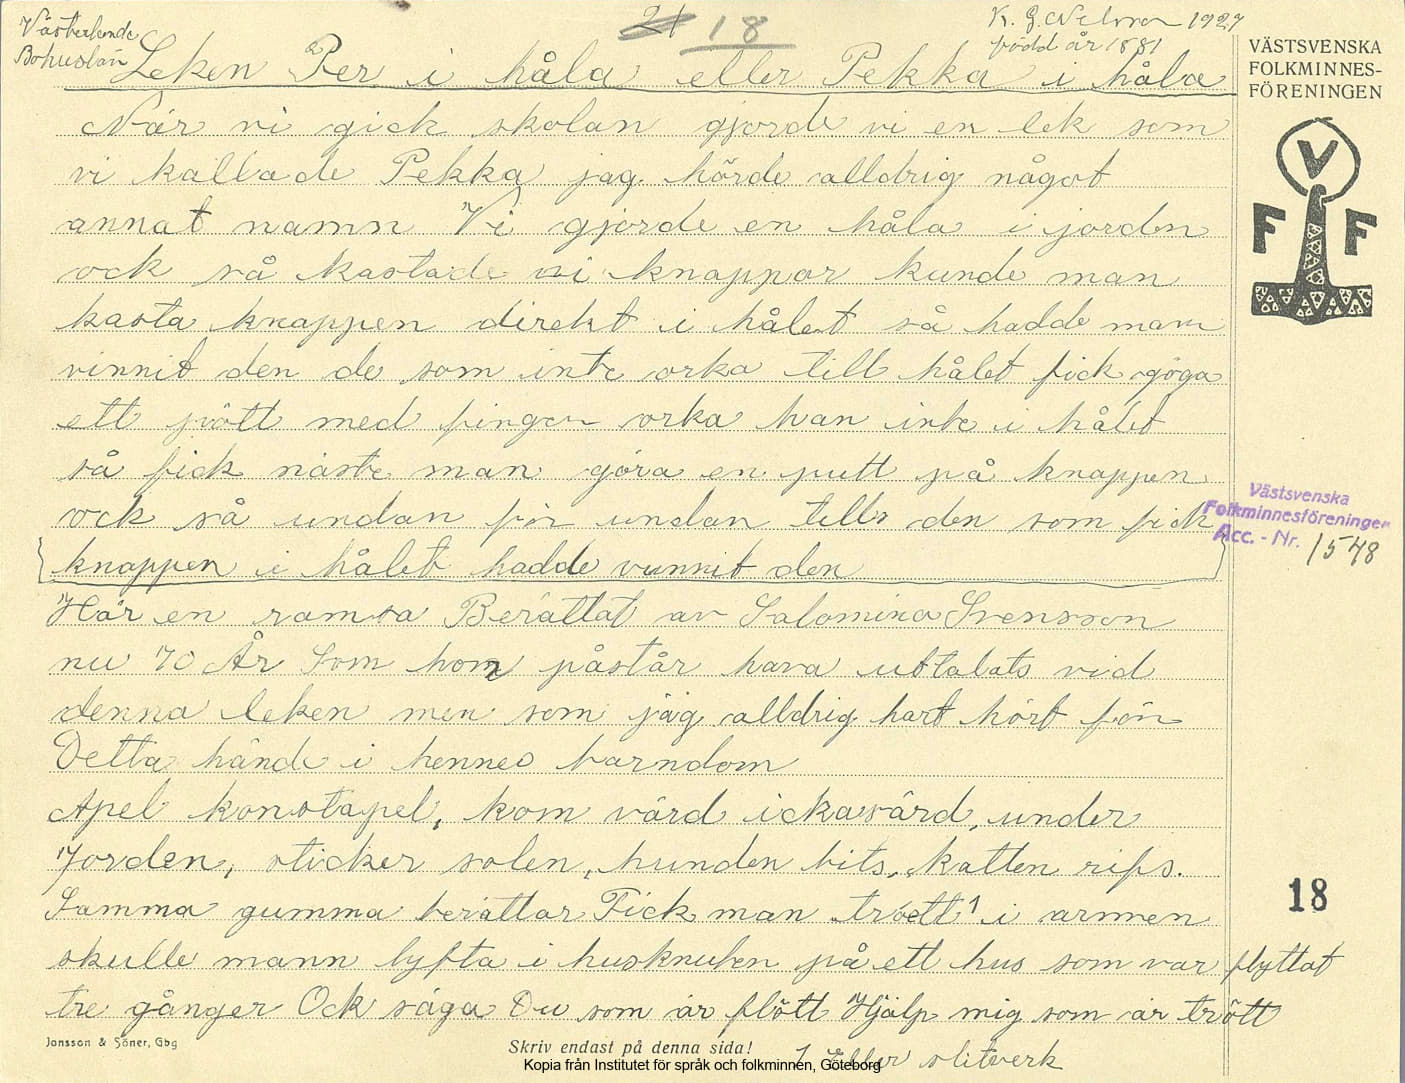 Västerlanda
Bohuslän
21 18
K. G. Nelson 1927
född år 1881
VÄSTSVENSKA
FOLKMINNES-
FÖRENINGEN
V
F F
Leken Per i håla eller Pekka i håla
När vi gick skolan gjorde vi en lek som
vi kallade Pekka jag hörde alldrig något
annat namn Vi gjorde en håla i jorden
ock så kastade vi knappar kunde man
kasta knappen direkt i hålet så hadde man
vinnit den de som inte orka till hålet fick göga
ett pött med finger orka han inte i hålet
så fick näste man göra en putt på knappen
ock så undan för undan tills den som fick
knappen i hålet hadde vunnit den
Västsvenska
Folkminnesföreningen
Acc. - Nr. 1548
Här en ramsa Berättat av Salomina Svensson
nu 70 År Som hon påstår hava uttalats vid
denna leken men som jag alldrig hört förr
Detta hände i hennes barndom
Apel konstapel, kom värd ickavärd, under
Jorden, sticker solen, hunden bits, katten rifs.
18
Samma gumma berättar Fick man tröett 1 i armen
skulle mann lyfta i husknuten på ett hus som var flyttat
tre gånger Ock säga Du som är flött Hjälp mig som är trött
Jonsson & Söner, Gbg
Skriv endast på denna sida!
1 Eller slitverk
Kopia från Institutet för språk och folkminnen, Göteborg